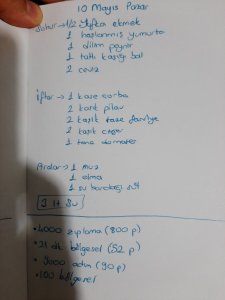 10 Mayıs Pazar
Sahur → 1/2 Yufka ekmek
1 haşlanmış yumurta
1 dilim peynir
1 tatlı kaşığı bal
2 ceviz
İftar → 1 kase çorba
2 kaşık pilav
2 kaşık taze fasulye
2 kaşık
1 tane domates
Aralar → 1 muz
1 elma
1 su bardağı süt
3 lt su
• 4000 zıplama (800 p)
• 21 dk bölgesel (52 p)
• 9000 adım (90 p)
• 100 bölgesel